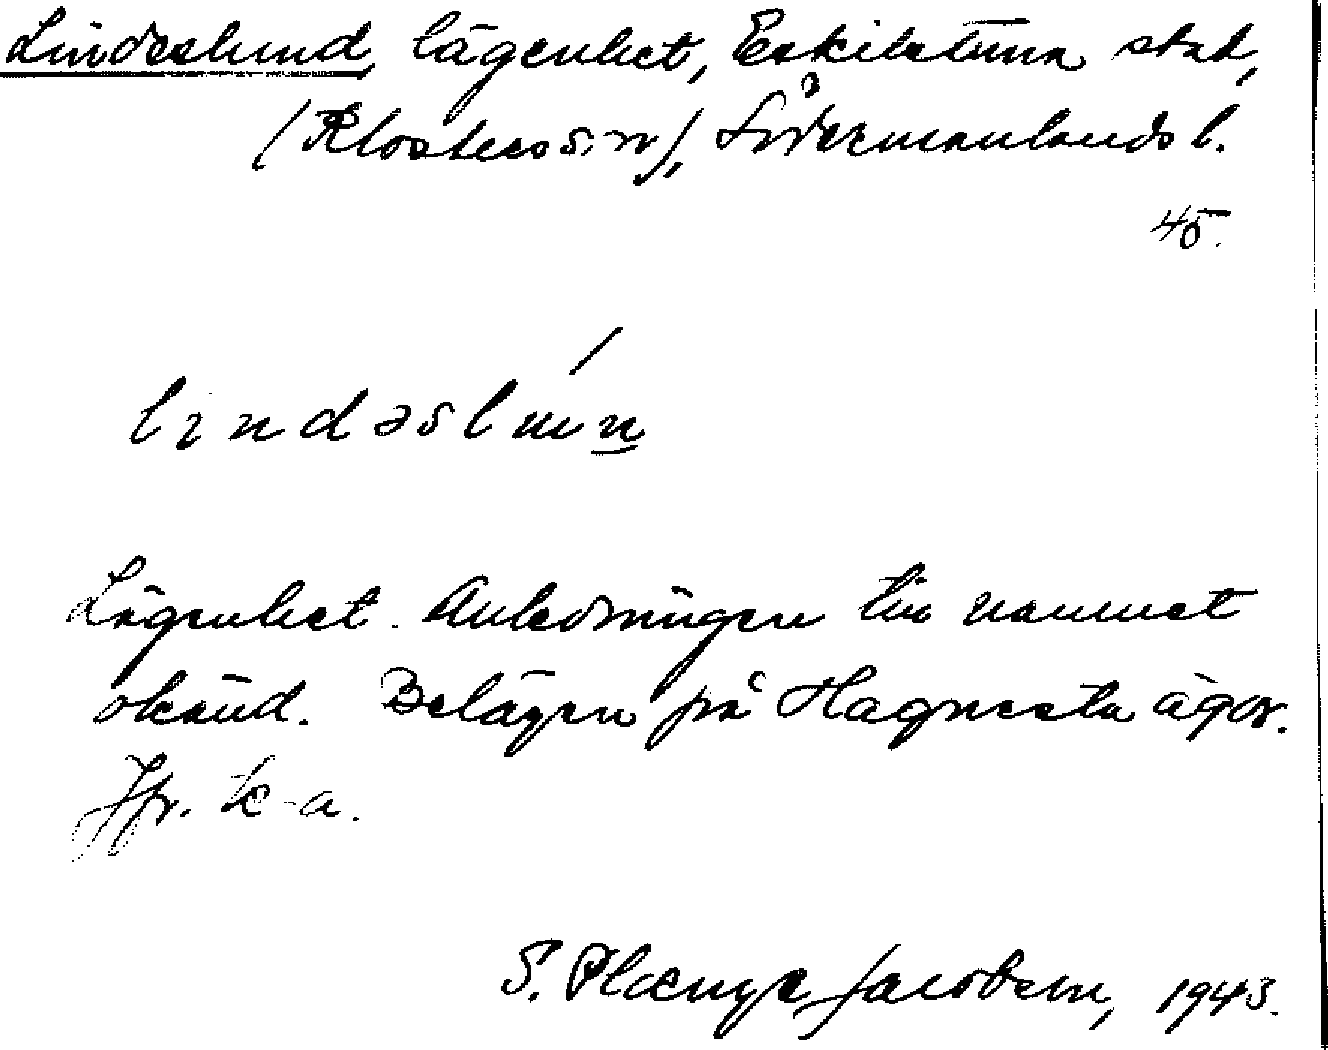 Lindeslund, lägenhet, Eskilstuna stad,
(Klosters sn), Södermanlands l.
45.
lindəslun
Lägenhet. Anledningen till namnet
okänd. Belägen på Hagnesta ägor.
Jfr. k-a.
S. Plænge Jacobson, 1943.